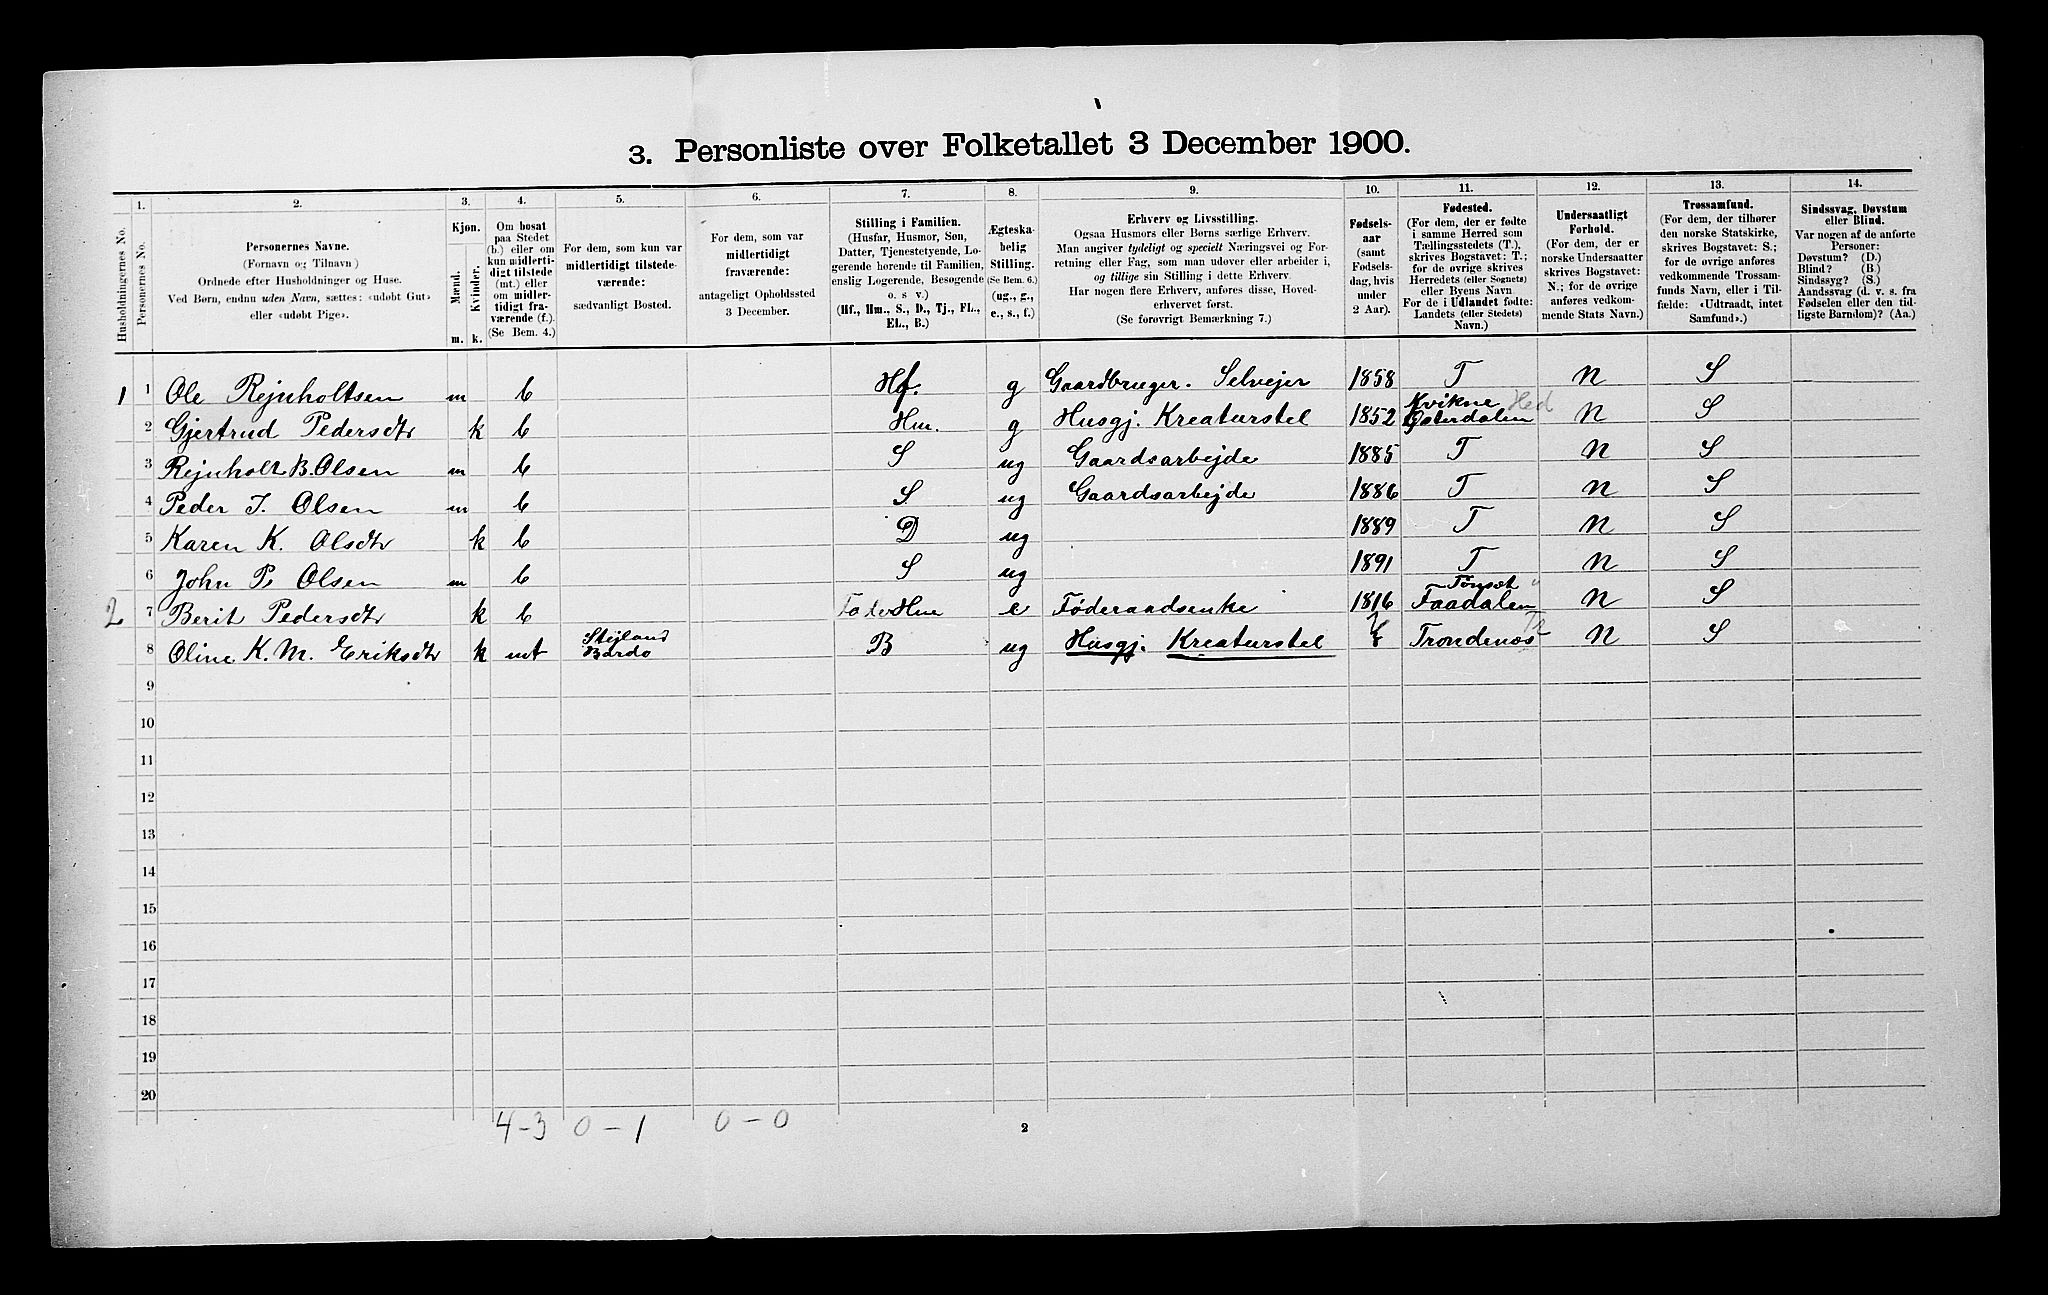 3. Personliste over Folketallet 3 December 1900.
Husholdningernes No.
1. Personernes No.
2. Personernes Navne.
(Fornavn og Tilnavn)
Ordnede efter Husholdninger og Huse.
Ved Børn, endnu uden Navn, sættes: «udøbt Gut»
eller «udøbt Pige».
3. Kjøn.
Mænd. Kvinder.
m. k.
4. Om bosat
paa Stedet
(b.) eller om
kun midlerti-
digt tilstede
(mt.) eller
om midler-
tidigt fra-
værende (f.).
(Se Bem. 4.)
5. For dem, som kun var
midlertidigt tilstede-
værende:
sædvanligt Bosted.
6. For dem, som var
midlertidigt
fraværende:
antageligt Opholdssted
3 December.
7. Stilling i Familien.
(Husfar, Husmor, Søn,
Datter, Tjenestetyende, Lo-
gerende hørende til Familien,
enslig Logerende, Besøgende
o. s v.)
(Hf., Hm., S., D., Tj., FL.,
EL., B.)
8. Ægteska-
belig
Stilling.
(Se Bem. 6.)
(ug., g.,
e., s., f.)
9. Erhverv og Livsstilling.
Ogsaa Husmors eller Børns særlige Erhverv.
Man angiver tydeligt og specielt Næringsvei og For-
retning eller Fag, som man udøver eller arbeider i,
og tillige sin Stilling i dette Erhverv.
Har nogen flere Erhverv, anføres disse, Hoved-
erhvervet først.
(Se forøvrigt Bemærkning 7.)
10. Fødsels-
aar
(samt
Fødsels-
dag, hvis
under
2 Aar).
11. Fødested.
(For dem, der er fødte
i samme Herred som
Tællingsstedets (T.),
skrives Bogstavet: T.;
for de øvrige skrives
Herredets (eller Sognets)
eller Byens Navn
For de i Udlandet fødte:
Landets (eller Stedets)
Navn.)
12. Undersaatligt
Forhold.
(For dem, der er
norske Undersaatter
skrives Bogstavet:
N.; for de øvrige
anføres vedkom-
mende Stats Navn.)
13. Trossamfund.
(For dem, der tilhører
den norske Statskirke,
skrives Bogstavet: S.;
for de øvrige anføres
vedkommende Trossam-
funds Navn, eller i Til-
fælde: «Udtraadt, intet
Samfund».)
14. Sindssvag, Døvstum
eller Blind.
Var nogen af de anførte
Personer:
Døvstum? (D.)
Blind? (B.)
Sindssyg? (S.)
Aandssvag (d. v. s. fra
Fødselen eller den tid-
ligste Barndom)? (Aa.)
1 1 Ole Rejnholtsen m b Hf. g Gaardbruger. Selvejer 1858 T N S
2 Gjertrud Pedersdtr k b Hm. g Husgj. Kreaturstel 1852 Kvikne Østerdalen Hed N S
3 Rejnholt B. Olsen m b S ug Gaardsarbejde 1885 T N S
4 Peder J. Olsen m b S ug Gaardsarbejde 1886 T N S
5 Karen K. Olsdtr k b D ug 1889 T N S
6 John P. Olsen m b S ug 1891 T N S
2 7 Berit Pedersdtr k b e Føderaadsenke 1816 Tønset Faadalen N S
8 Oline K. M. Eriksdtr k mt Stejland Bardo B ug Husgj. Kreaturstel Trondenæs N S
9
10
11
12
13
14
15
16
17
18
19
20
4-3 0-1 0-0
2